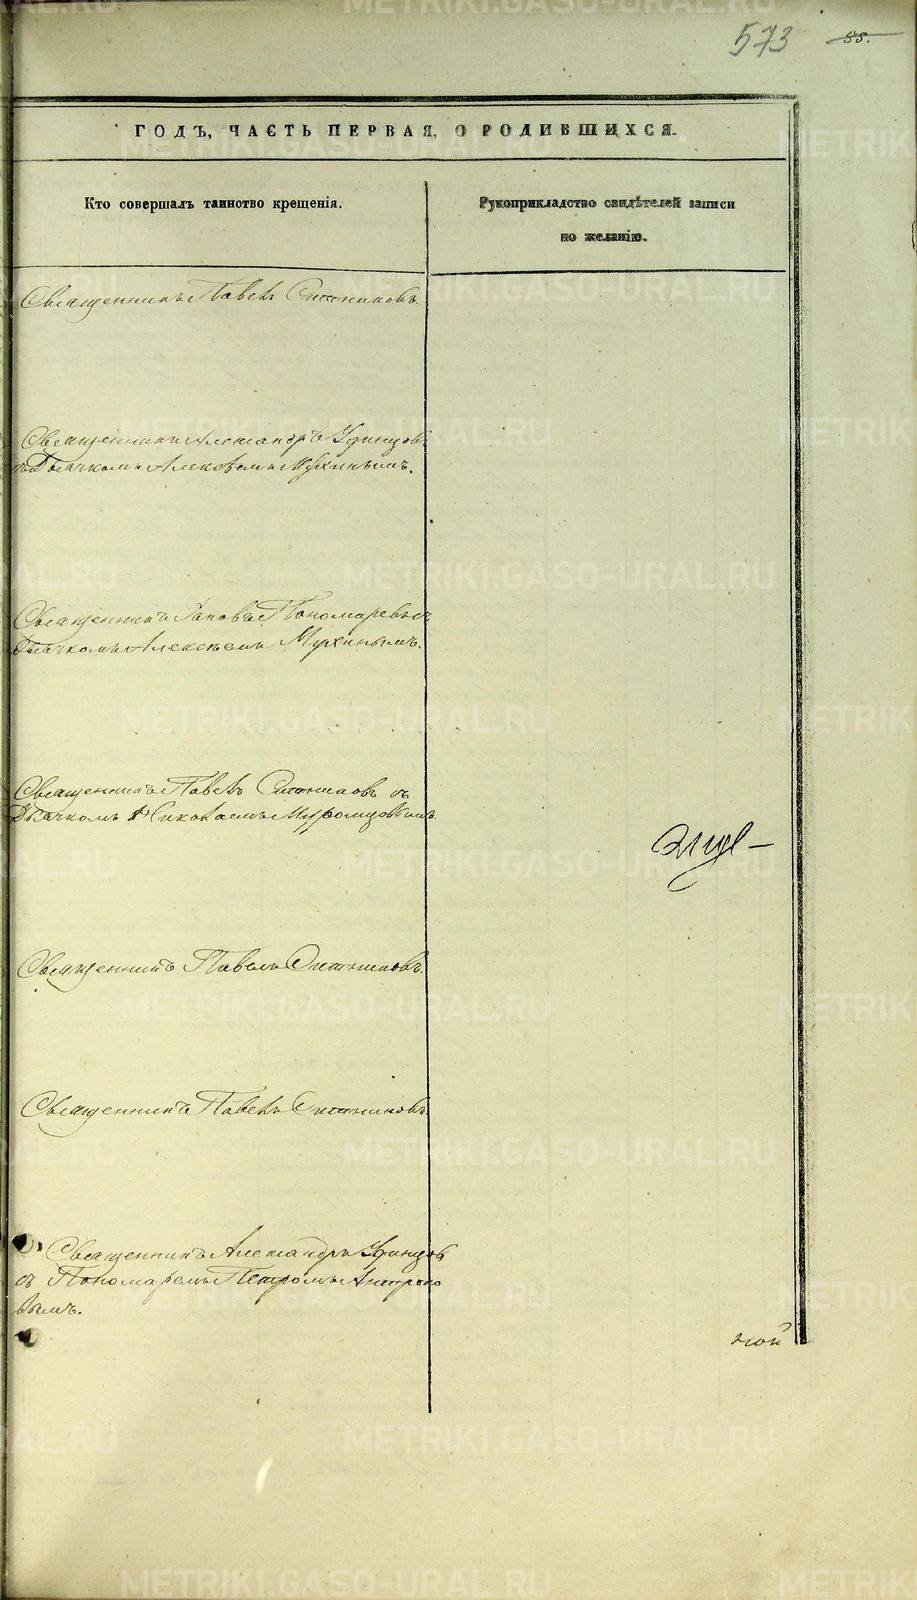 573 55.
ГОДЪ, ЧАСТЬ ПЕРВАЯ, О РОДИВШИХСЯ.
Кто совершалъ таинство крещенія.
Рукоприкладство свидѣтелей записи
по желанію.
Священникъ Павелъ Ситниковъ.
Священникъ Александръ Удинцовъ
съ Дьячкомъ Алексѣемъ Мухинымъ.
Священникъ Іаковъ Пономаревъ съ
Дьячкомъ Алексѣемъ Мухинымъ.
Священникъ Павелъ Ситниковъ съ
Дьячкомъ Николаемъ Муромцовымъ.
Священникъ Павелъ Ситниковъ.
Священникъ Павелъ Ситниковъ.
Священникъ Александръ Удинцовъ
съ Пономаремъ Петромъ
вымъ.
METRIKI.GASO-URAL.RU